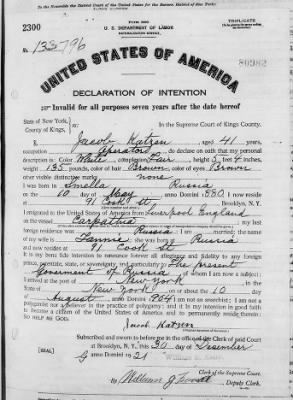 To the Honorable the
2300
Form 2202
U. S. DEPARTMENT OF LABOR
NATURALIZATION SERVICE
TRIPLICATE
No. 133796
UNITED STATES OF AMERICA
80982
DECLARATION OF INTENTION
Invalid for all purposes seven years after the date hereof
State of New York,
County of Kings,
In the Supreme Court of Kings County.
I, Jacob Katzen, aged 41 years,
occupation Operator, do declare on oath that my personal
description is: Color White, complexion Fair, height 5 feet inches,
weight 135 pounds, color of hair Brown, color of eyes Brown
other visible distinctive marks none
I was born in Smella Russia
on the 10 day of May, anno Domini 1880; I now reside
at 91 Cook St Brooklyn, N. Y.
I emigrated to the United States of America from Liverpool England
on the vessel Carpathia; my last
foreign residence was Russia; I am married; the name
of my wife is Fannie; she was born at Russia
and now resides at 91 Cook St
It is my bona fide intention to renounce forever all allegiance and fidelity to any foreign
prince, potentate, state, or sovereignty, and particularly to The present
Government of Russia, of whom I am now a subject;
I arrived at the port of New York, in the
State of New York, on or about the 10 day
of August, anno Domini 1904; I am not an anarchist; I am not a
polygamist nor a believer in the practice of polygamy; and it is my intention in good faith
to become a citizen of the United States of America and to permanently reside therein:
SO HELP ME GOD.
Jacob Katzen
Subscribed and sworn to before me in the office of the Clerk of said Court
at Brooklyn, N. Y., this 30 day of December
anno Domini 1921
[SEAL]
Clerk of the Supreme Court.
By William J., Deputy Clerk.